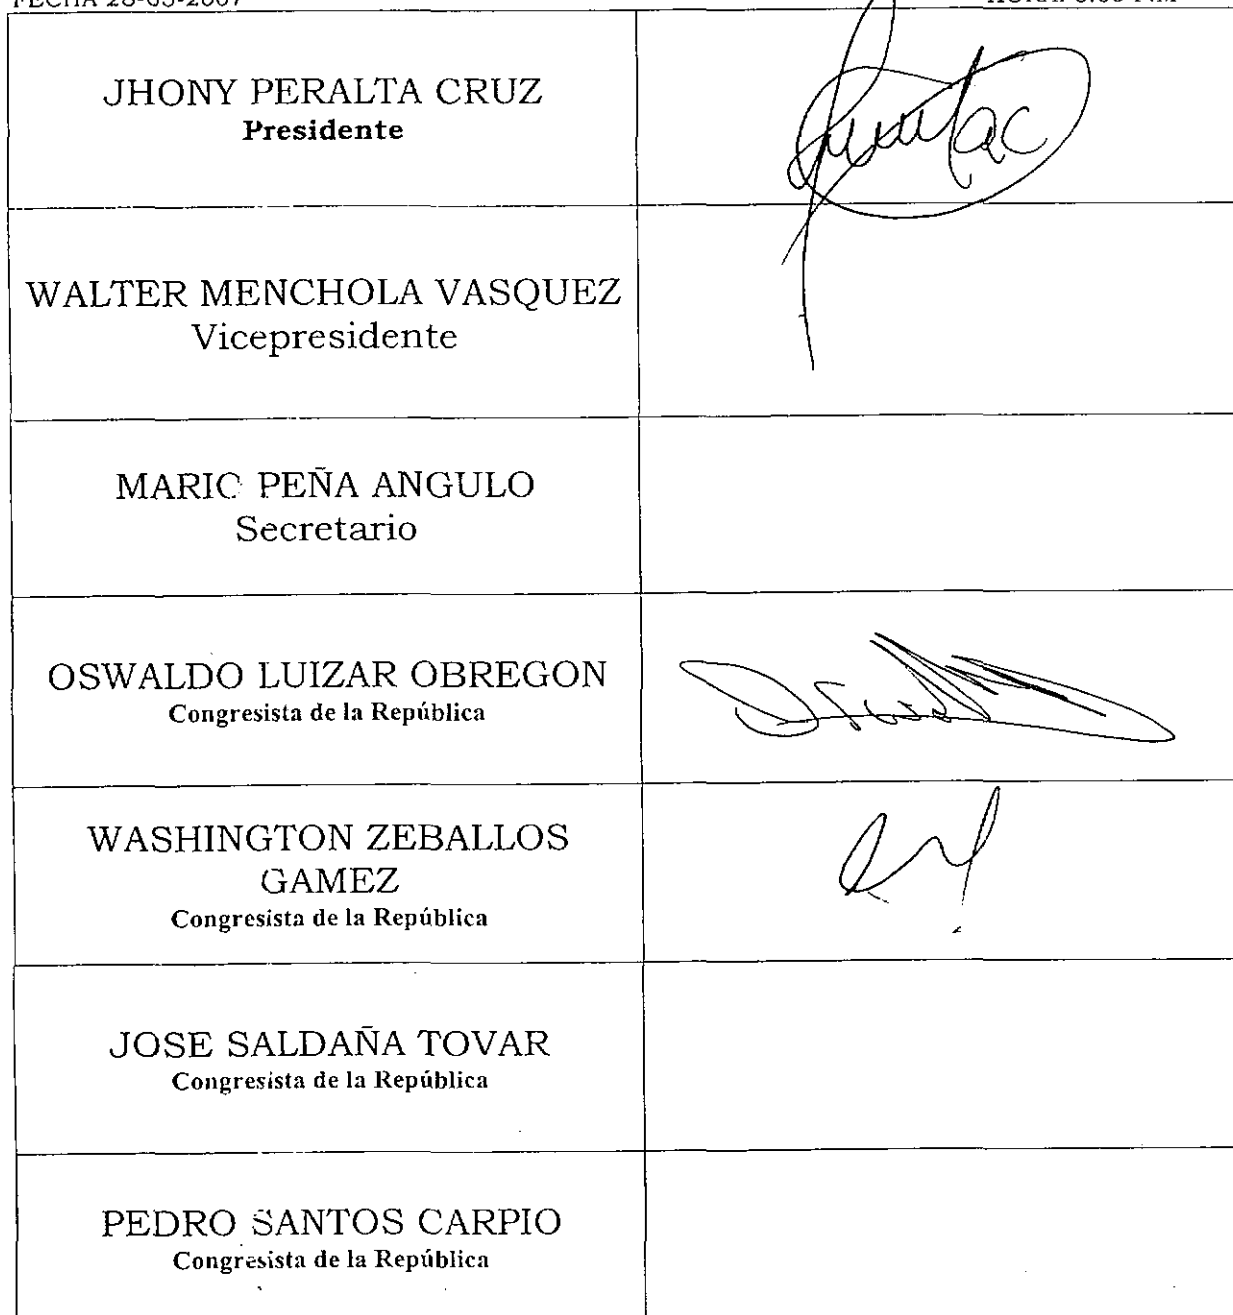 JHONY PERALTA CRUZ
Presidente
WALTER MENCHOLA VASQUEZ
Vicepresidente
MARIO PEÑA ANGULO
Secretario
OSWALDO LUIZAR OBREGON
Congresista de la República
WASHINGTON ZEBALLOS
GAMEZ
Congresista de la República
JOSE SALDAÑA TOVAR
Congresista de la República
PEDRO SANTOS CARPIO
Congresista de la República